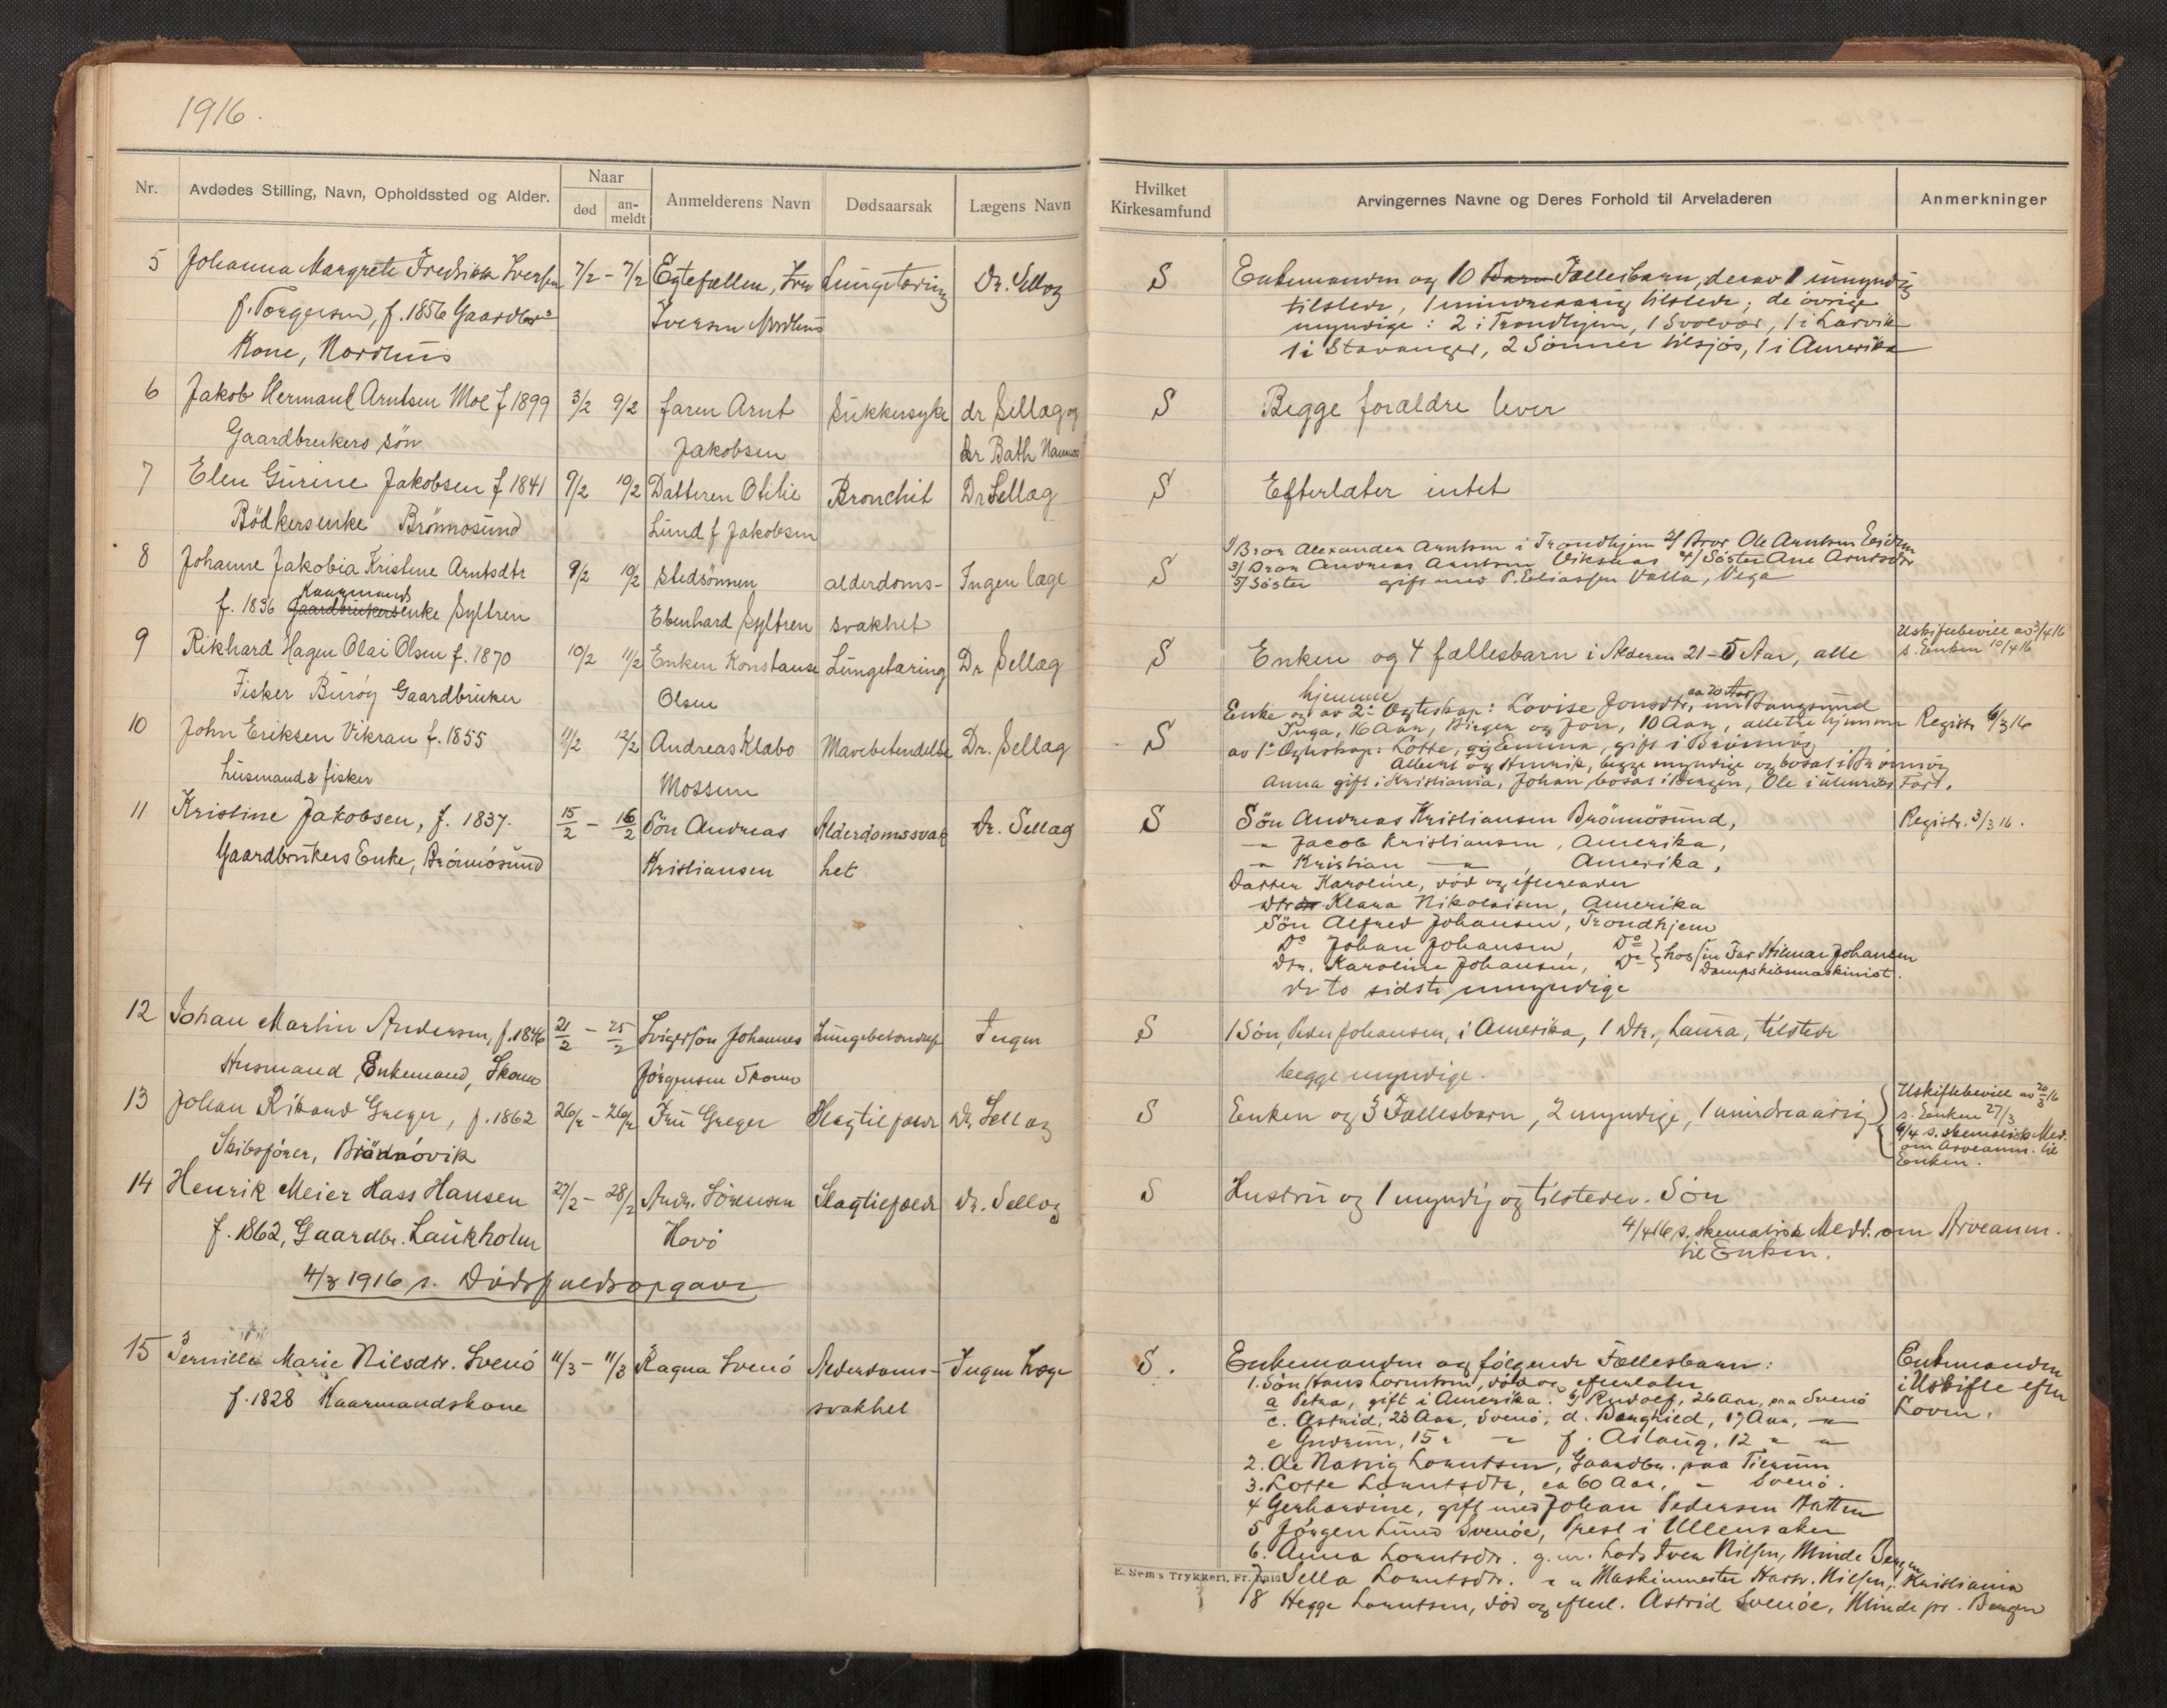 1916.
Nr.
Avdødes Stilling, Navn, Opholdssted og Alder.
Naar
død
an-
meldt
Anmelderens Navn
Dødsaarsak
Lægens Navn
Hvilket
Kirkesamfund
Arvingernes Navne og Deres Forhold til Arveladeren
Anmerkninger
5 Johanna Margrete Fredrikk Iversen 7/2 - 7/2 Egtefællen, Iver Lungetæring Dr. Sellæg S Enkemanden og 10 Barn Fællesbarn, derav 1 umyndig
f. Torgersen, f. 1856 Gaardbr. Iversen Nordhus tilstede, 1 mindreaarig tilstede; de øvrige
Kone, Nordhus myndige: 2 i Trondhjem, 1 Svolvær, 1 i Larvik
1 i Stavanger, 2 Sønner tilsjøs, 1 i Amerika
6 Jakob Hermann Arntsen Moe f 1899 3/2 9/2 faren Arnt Sukkersyke dr Sellæg og S Begge forældre lever
Gaardbrukers søn Jakobsen Dr Bath Namsos
7 Elen Gurine Jakobsen f 1841 9/2 10/2 Datteren Otilie Bronchit Dr Sellæg S Efterlater intet
Bødkersenke Brønnøsund Lund f Jakobsen
8 Johanne Jakobia Kristine Arntsdtr 9/2 10/2 Stedsønnen alderdoms- Ingen læge S 1/ Bror Alexander Arntsen i Trondhjem 2/ Bror Ole Arntsen
3/ Bror Andreas Arntsen Viksaas 4/ Søster Ane Arntsdtr
Kaarmands
f. 1836 Gaardbrukersenke Syltren Ebenhard Syltren svakhet 5/ Søster gift med P. Eliassen Valla, Vega
9 Rikhard Hagen Olai Olsen f. 1870 10/2 11/2 Enken Konstanse Lungetæring Dr Sellæg S Enken og 4 fællesbarn i Alderen 21-5 Aar, alle
hjemme
Uskiftebevill av 3/4 16
s. Enken 10/4 16
Fisker Burøy Gaardbruker Olsen
10 John Eriksen Vikran f. 1855 11/2 12/2 Andreas Klæbo Mavebetændelse Dr. Sellæg S Enke og av 2det Egteskap: Lovise Jonsdtr, ca 20 Aar, Bangsund
Inga, 16 Aar, Birger og Jon, 10 Aar, alle tre hjemme Registr 6/3 16
av 1ste Egteskap: Lotte, og Emma, gift i Brønnøy
Husmand & fisker Mossem Albert og Henrik, begge myndige og bosat i Brønnøy
Anna gift i Kristiania, Johan bosat i Bergen, Ole i utenriks Fart.
11 Kristine Jakobsen, f. 1837. 15/2 - 16/2 Søn Andreas Alderdomssvak Dr. Sellæg S Søn Andreas Kristiansen Brønnøsund, Registr. 3/3 16.
Gaardbrukers Enke, Brønnøsund Kristiansen het
" Jacob Kristiansen, Amerika,
" Kristian " , Amerika,
Datter Karoline, død og efterlader
Dtr. Klara Nikolaisen, Amerika
Søn Alfred Johansen, Trondhjem
Do Johan Johansen, Do } hos sin Far Hilmar Johansen
Dtr. Karoline Johansen, Do } Dampskibsmaskinist.
de to sidste umyndige
12 Johan Martin Andersen, f. 1846 21/2 - 25/2 Svigersøn Johannes Lungebetændelse Ingen S 1 Søn, Peder Johansen, i Amerika, 1 Dtr., Laura, tilstede
Husmand, Enkemand, Skomo Jørgensen Skomo begge myndige.
13 Johan Rikard Greger, f. 1862 26/2 - 26/2 Fru Greger Slagtilfælde Dr Sellæg S Enken og 3 Fællesbarn, 2 myndige, 1 mindreaarig
Skibsfører, Brønnøvik
Uskiftebevill av 20/3 16
s. Enken 27/3
4/4 s. skematisk Med.
om Arveanm. til
Enken.
14 Henrik Meier Hass Hansen 27/2 - 28/2 Andr. Sørensen Slagtilfælde Dr. Sellæg S Hustru og 1 myndig og tilstedev. Søn
f. 1862, Gaardbr. Laukholm Havø
4/4 16 s. skematisk Medd. om Arveanm.
til Enken.
4/3 1916 s. Dødsfaldsopgave
15 Pernille Marie Nilsdtr. Svenø 11/3 - 11/3 Ragna Svenø Alderdoms- Ingen Læge S. Enkemanden og følgende Fællesbarn:
f. 1828 Kaarmandskone svakhet
Enkemanden
i Uskifte efter
Loven.
1. Søn Hans Lorntsen, død og efterlater
a Petra, gift i Amerika. b/ Rudolf, 26 Aar, paa Svenø
c. Astrid, 23 Aar, Svenø, d. Borghild, 17 Aar, "
e Gudrun, 15 " " f. Aslaug, 12 " "
2. Ole Natvig Lorntsen, Gaardbr. paa Tilrum
3. Lotte Lorntsdtr, ca 60 Aar, " Svenø.
4 Gerhardine, gift med Johan Pedersen Hatten
5 Jørgen Lund Svenøe, Prest i Ullensaker
6. Anna Lorntsdtr. g. m. Lods Iver Nilsen, Minde Bergen
7. Sella Lorntsdtr. " " Maskinmester Hartv. Nilsen, Kristiania
8 Hegge Lorntsen, død og efterl. Astrid Svenøe, Minde pr. Bergen
E. Sem's Trykkeri, Fr.hald